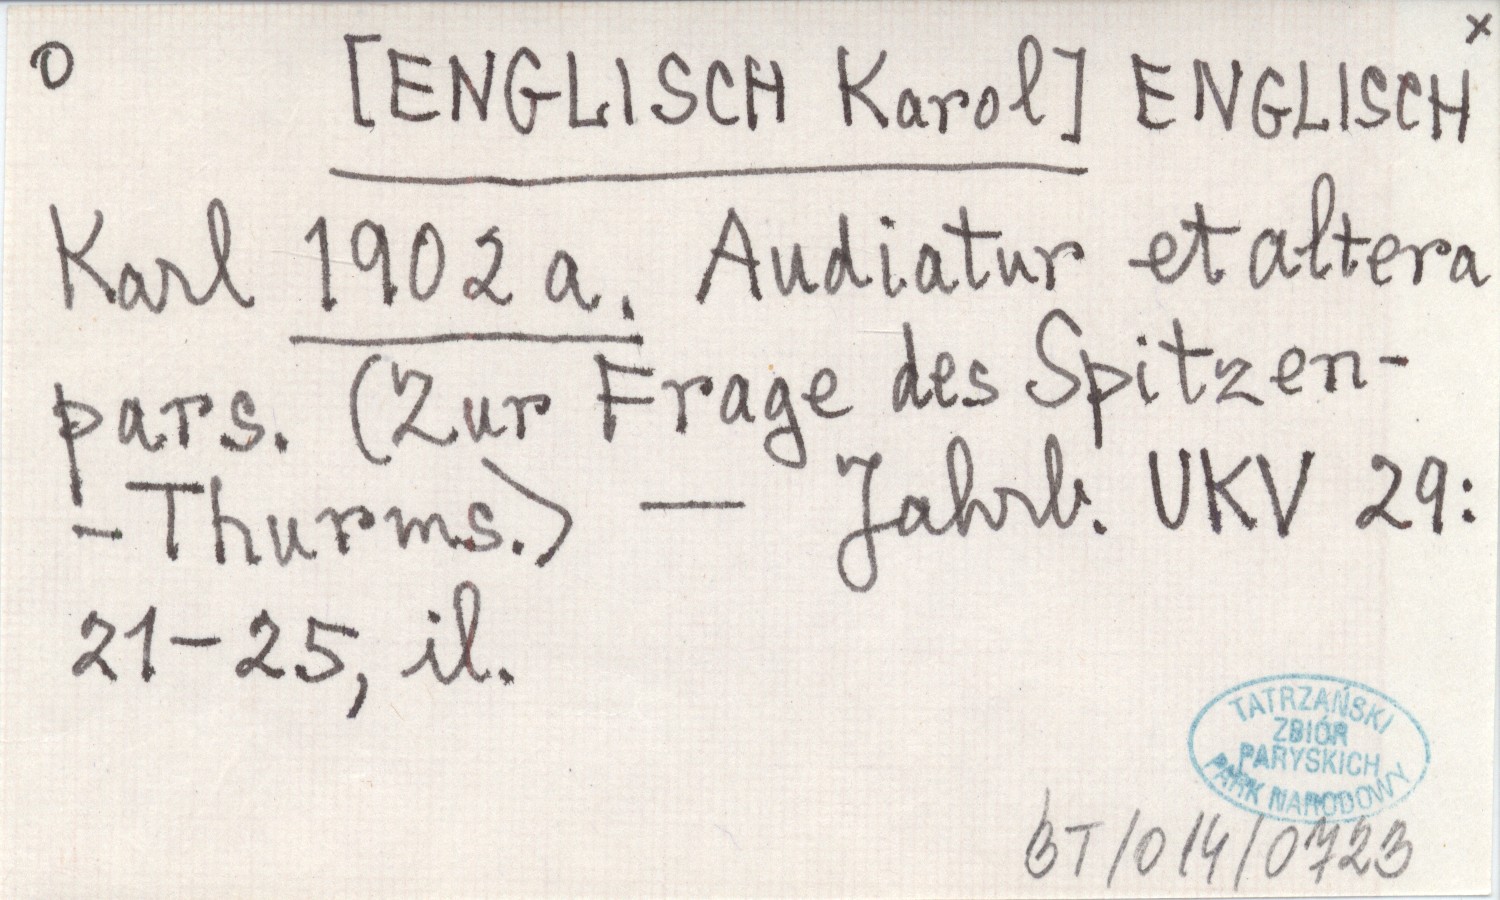 O [ENGLISCH Karol] ENGLISCH x
Karl 1902 a. Audiatur et altera
pars. (Zur Frage des Spitzen-
-Thurms.) — Jahrb. UKV 29:
21-25, il.
TATRZAŃSKI
ZBIÓR
PARYSKICH
PARK NARODOWY
BT/014/0723